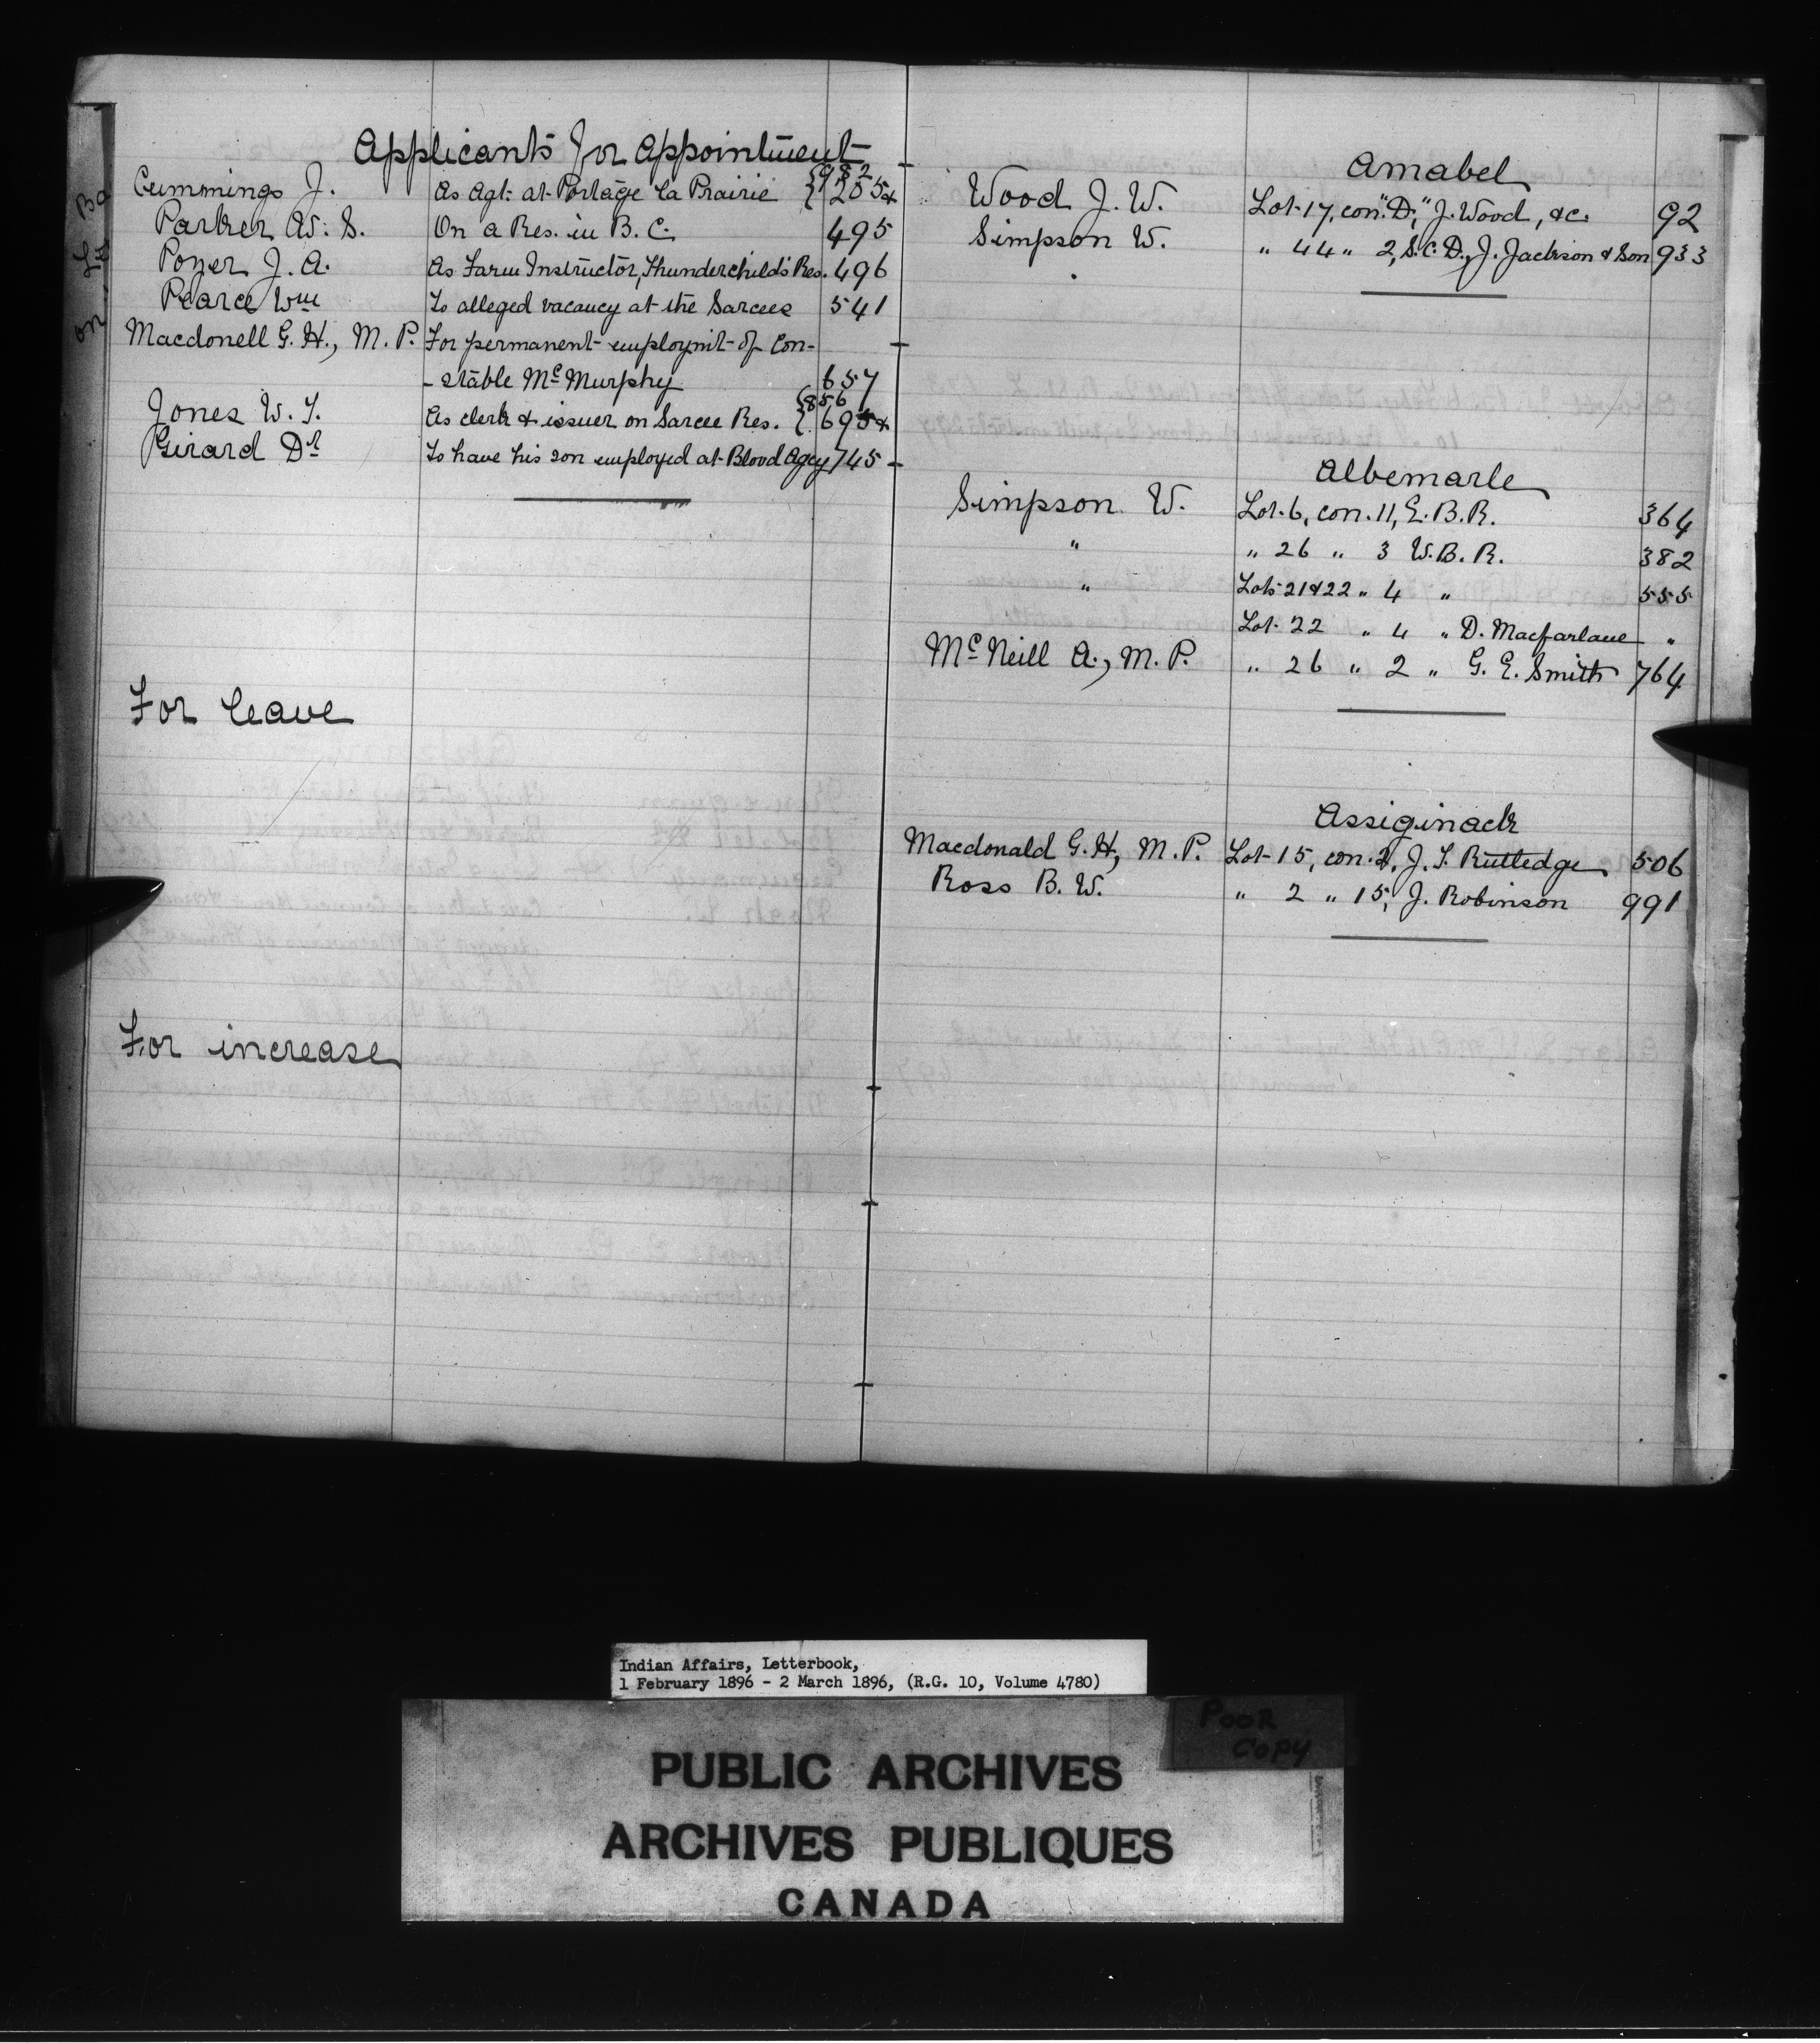 Applicants for appointment
Cummings J. As Agt. at Portage la Prairie {982
{205&
Parker W. S. On a Res. in B. C. 495
Pozer J. A. As Farm Instructor, Thunderchild's Res. 496
Pearce Wm To alleged vacancy at the Sarcees 541
Macdonell G. H., M. P. For permanent employm't of Con-
-stable McMurphy 657
Jones W. T. As clerk & issuer on Sarcee Res. {856
{695&
Girard Dr To have his son employed at Blood Agcy 745
For leave
For increase
Amabel
Wood J. W. Lot 17, con. "D," J. Wood, &c. 92
Simpson W. " 44 " 2, S. C. D., J. Jackson & Son 933
Albemarle
Simpson W. Lot 6, con. 11, E. B. R. 364
" " 26 " 3 W. B. R. 382
" Lots 21 & 22 " 4 " 555
Lot 22 " 4 " D. Macfarlane "
McNeill A., M. P. " 26 " 2 " G. E. Smith 764
Assiginack
Macdonald G. H., M. P. Lot 15, con. 2, J. T. Rutledge 506
Ross B. W. " 2 " 15, J. Robinson 991
Indian Affairs, Letterbook,
1 February 1896 - 2 March 1896, (R.G. 10, Volume 4780)
POOR
COPY
PUBLIC ARCHIVES
ARCHIVES PUBLIQUES
CANADA